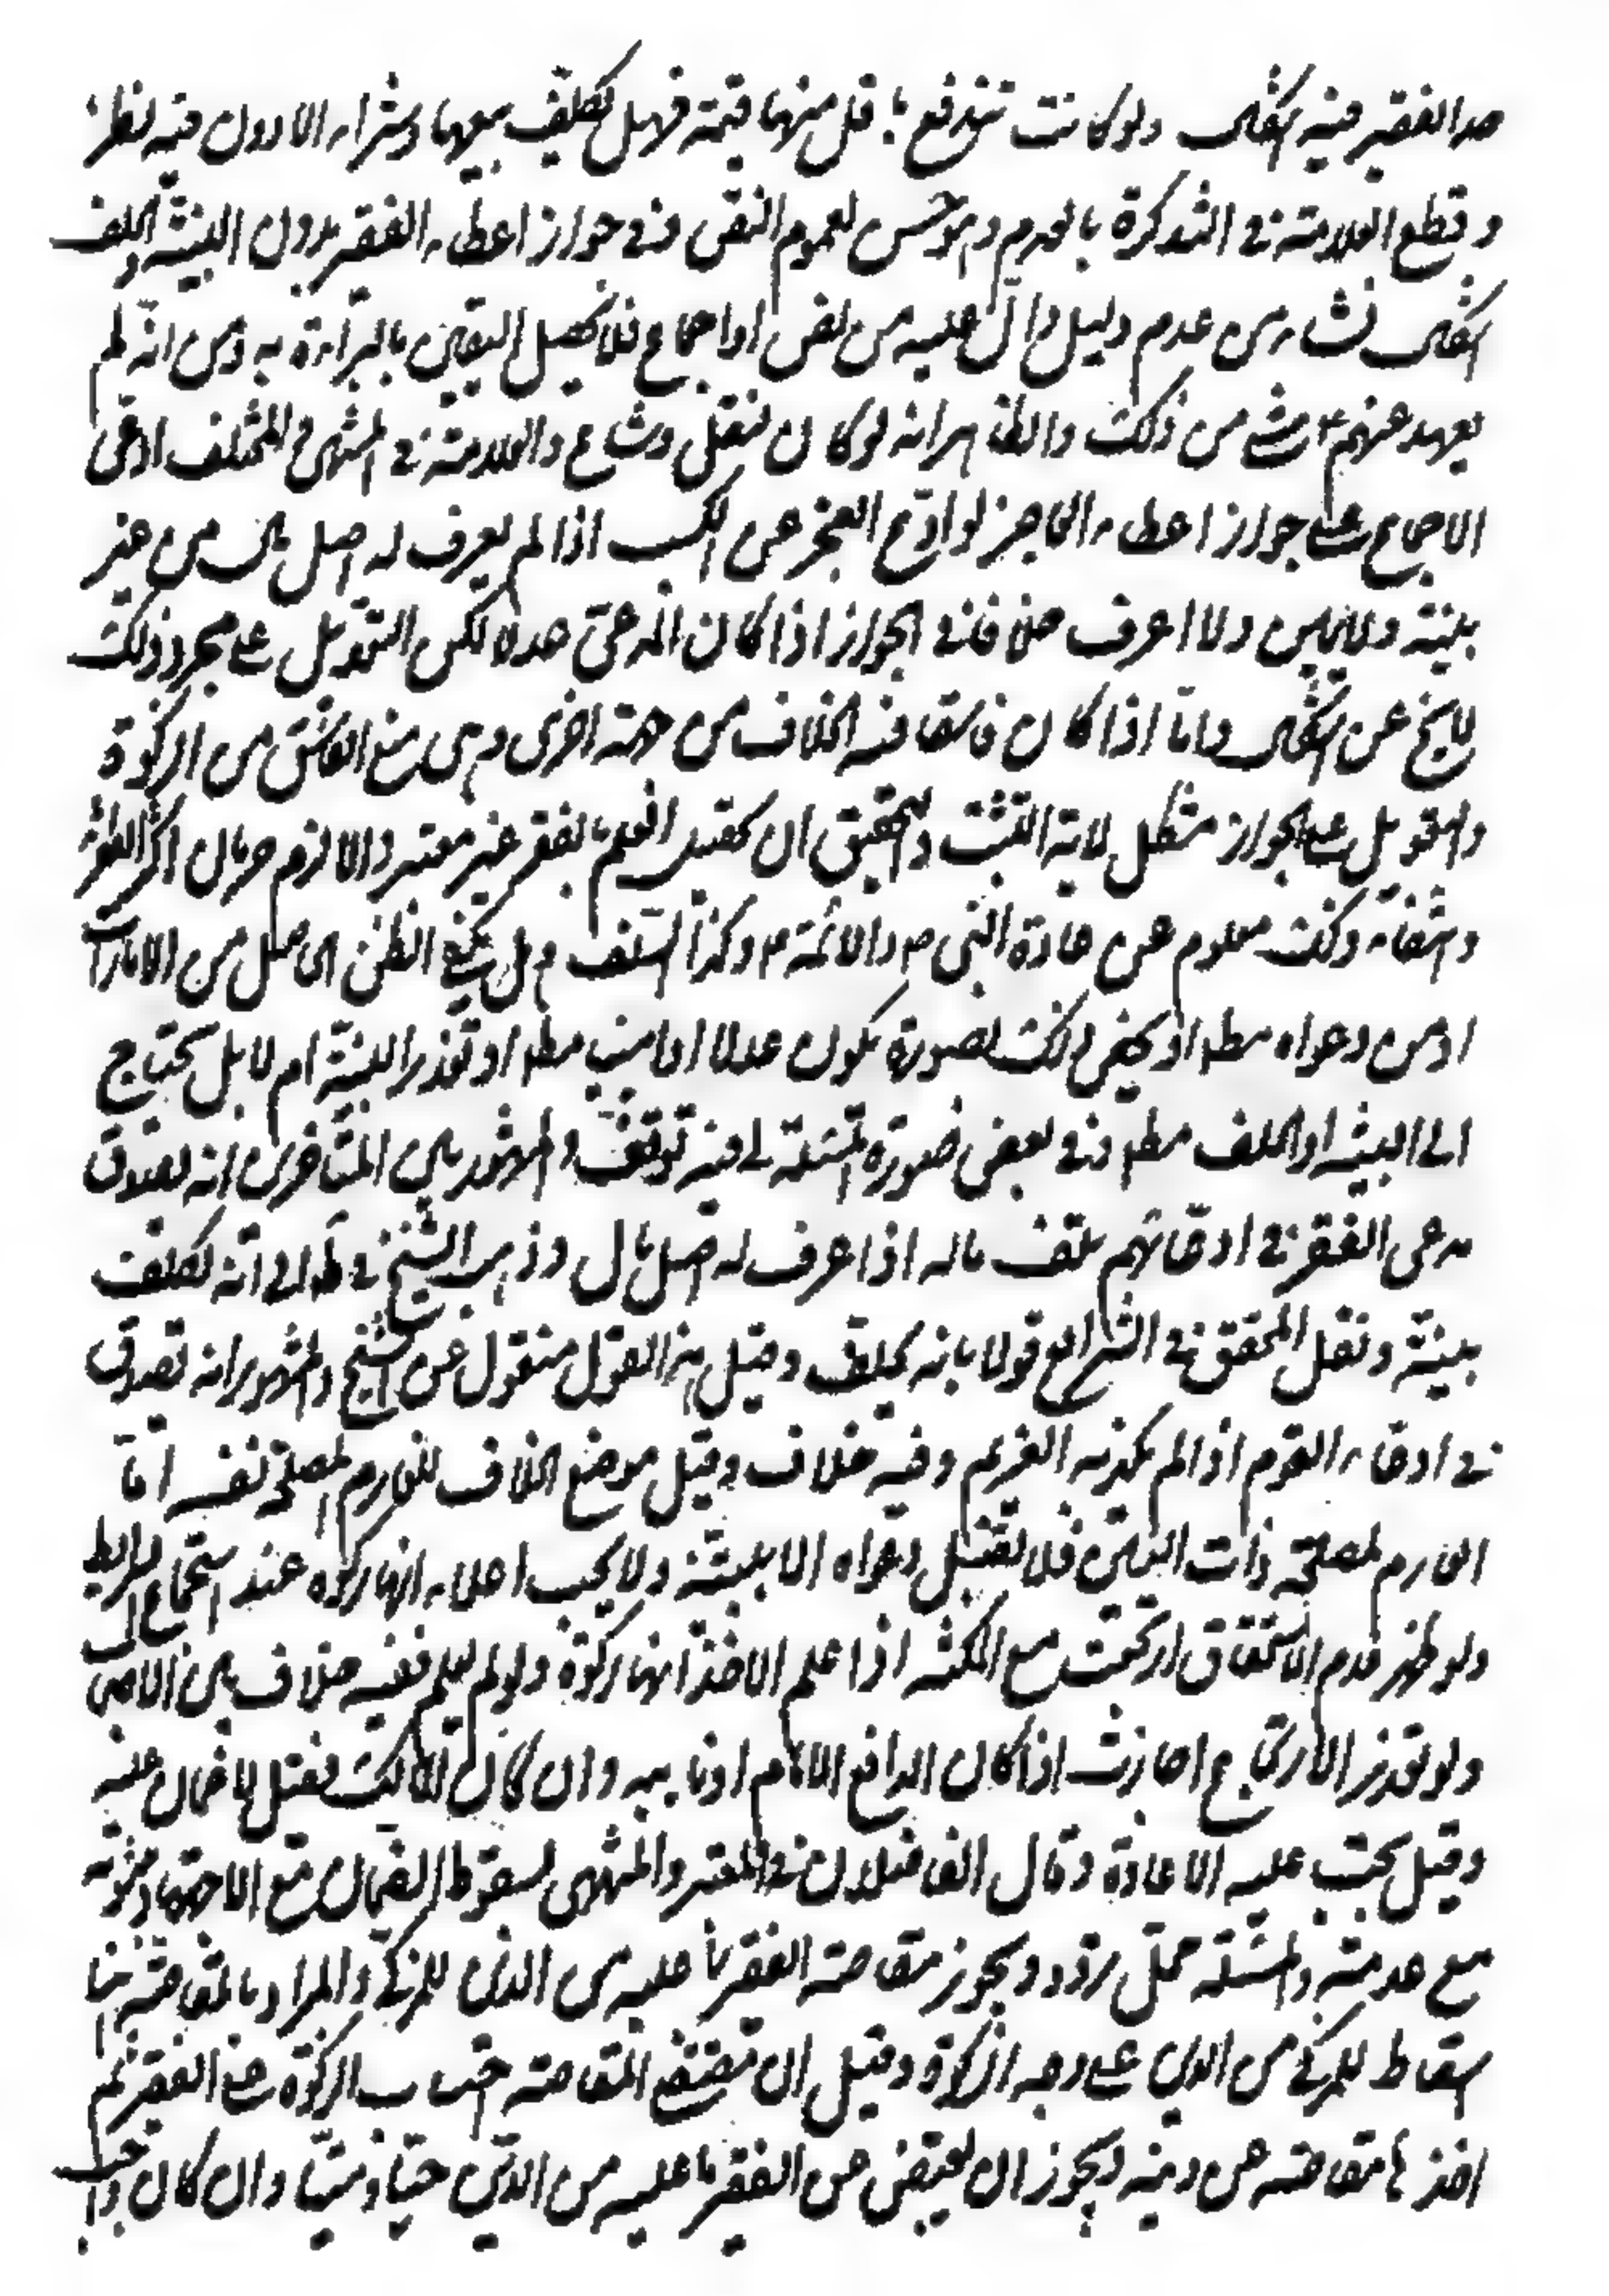 حد الفقير فيه اشكال ولو كانت تندفع باقل منها قيمة فهل يكلف بيعها وشراء الادون فيه نظر
وقطع العلامة في التذكرة بالعدم وهو حسن لعموم النص وفي جواز اعطاء الفقير بدون البينة والحلف
اشكال نشاء من عدم دليل دال عليه من نص او اجماع فلا يحصل اليقين بالبراءة به ومن انه لم
يعهد عنهم ع شي من ذلك والظاهر انه لو كان لنقل وشاع والعلامة في المنتهى والمختلف ادعى
الاجماع على جواز اعطاء العاجز لو ادعى العجز عن الكسب اذا لم يعرف له اصل مال من غير
بينة ولا يمين ولا اعرف خلافا في الجواز اذا كان المدعي عدلا لكن التعويل على مجرد ذلك
لا يخ عن اشكال واما اذا كان فاسقا ففيه الخلاف من جهة اخرى وهي منع الفاسق من الزكوة
والتعويل على الجواز مشكل لاية التثبت والتحقيق ان تحصيل العلم بالفقر غير معتبر والا لزم حرمان اكثر الفقراء
وانتفاء ذلك معلوم عن عادة النبي ص والائمة ع وكذا السلف وهل يكفي الظن الحاصل من الامارات
او من دعواه مطلقا او يختص ذلك بصورة يكون عدلا او امين مطلقا او تعذر البينة ام لا بل يحتاج
الى البينة او الحلف مطلقا وفي بعض صور المسئلة لي فيه توقف والمشهور بين المتاخرين انه يصدق
مدعي الفقر في ادعائهم تلف ماله اذا عرف له اصل مال وذهب الشيخ في ط الى انه يكلف
ببينة ونقل المحقق في الشرائع قولا بانه يحلف وقيل هذا القول منقول عن الشيخ والمشهور انه يصدق
في ادعاء الغرم اذا لم يكذبه الغريم وفيه خلاف وقيل موضع الخلاف الغارم لمصلحة نفسه اما
الغارم لمصلحة ذات البين فلا تقبل دعواه الا ببينة ولا يجب اعلامه انها زكوة عند استجماع الشرايط
ولو ظهر عدم الاستحقاق ارتجعت مع المكنة اذا علم الاخذ انها زكوة ولو لم يعلم ففيه خلاف بين الاصحاب
ولو تعذر الارتجاع اجازت اذا كان الدافع الامام او نايبه وان كان المالك فقيل لا ضمان عليه
وقيل يجب عليه الاعادة وقال الفاضلان في المعتبر والمنتهى بسقوط الضمان مع الاجتهاد وثبوته
مع عدمه والمسئلة محل تردد ويجوز مقاصة الفقير بما عليه من الدين للمزكي والمراد بالمقاصة هنا
اسقاط للمزكي من الدين على وجه الزكوة وقيل ان تقتضي المقاصة احتساب الزكوة على الفقير ثم
اخذها مقاصة عن دينه ويجوز ان يقبض عن الفقير ما عليه من الدين حيا وميتا وان كان واجب